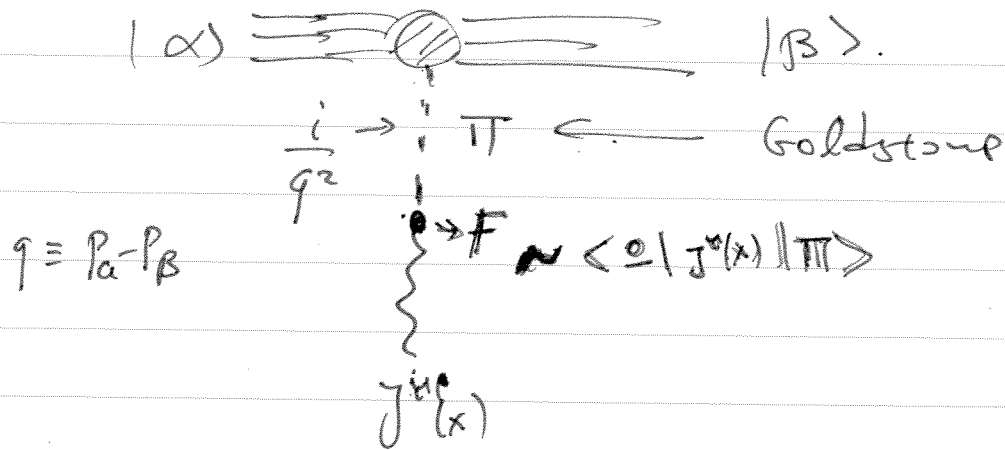 |α⟩ |β⟩.
i/q² → π ← Goldstone
q ≡ Pα-Pβ → F ~ <0| J^μ(x) |π>
J^μ(x)